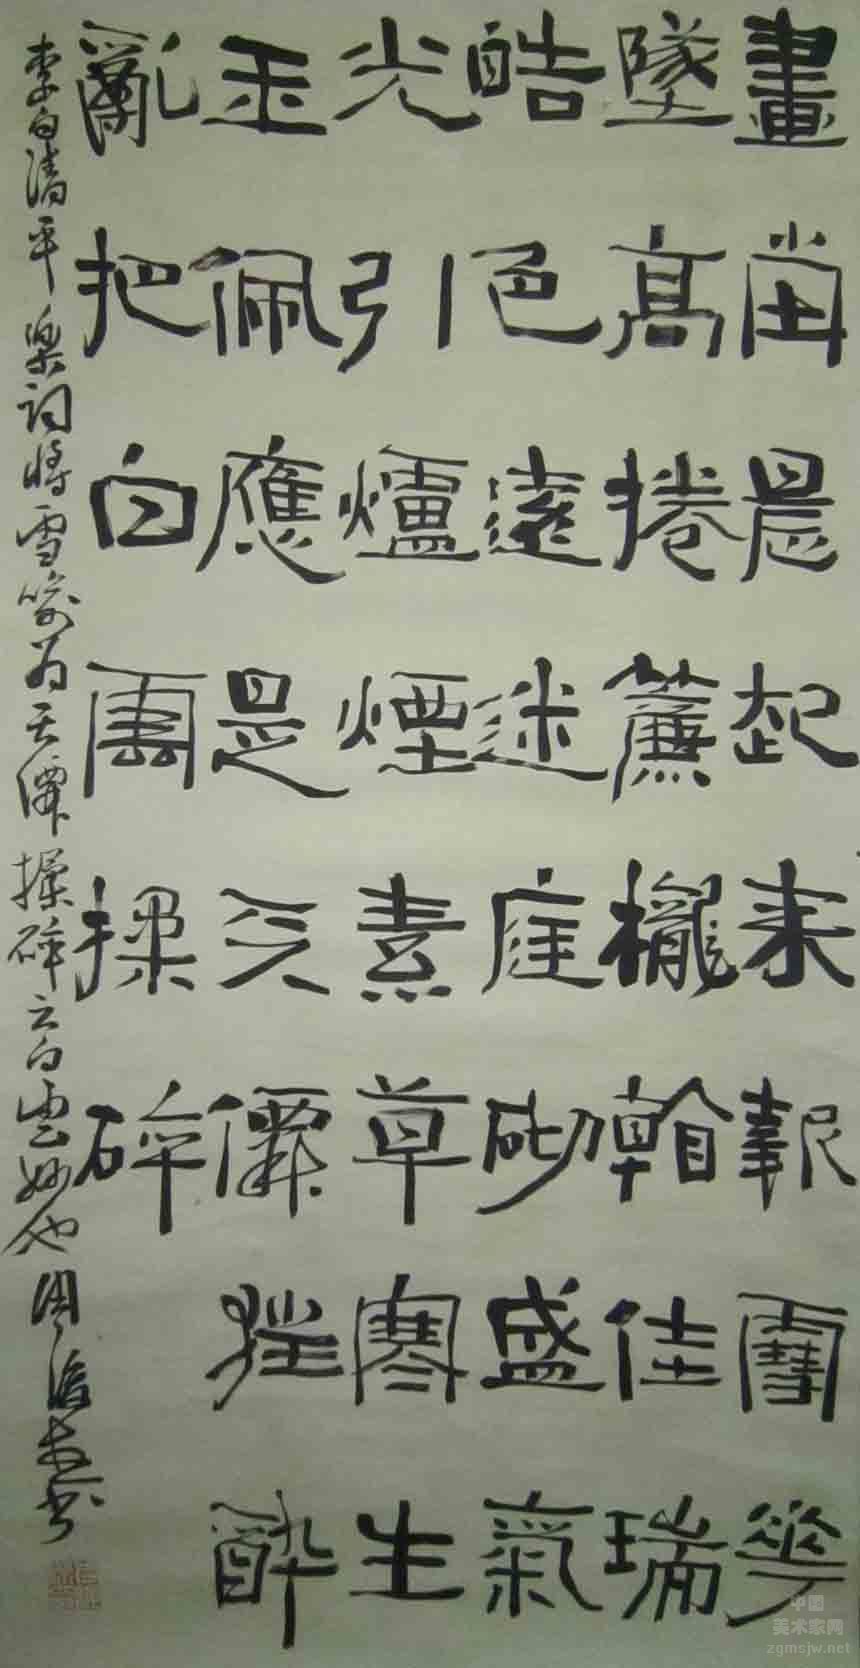 畫堂晨起来報雪花
墜高捲簾櫳看佳瑞
皓色遠迷庭砌盛氣
光引爐煙素草寒生
玉佩應是天僊狂醉
亂把白雲揉碎
李白清平楽詞將雪喻为天僊揉碎之白雲妙也
中国
美术家网
zgmsjw.net